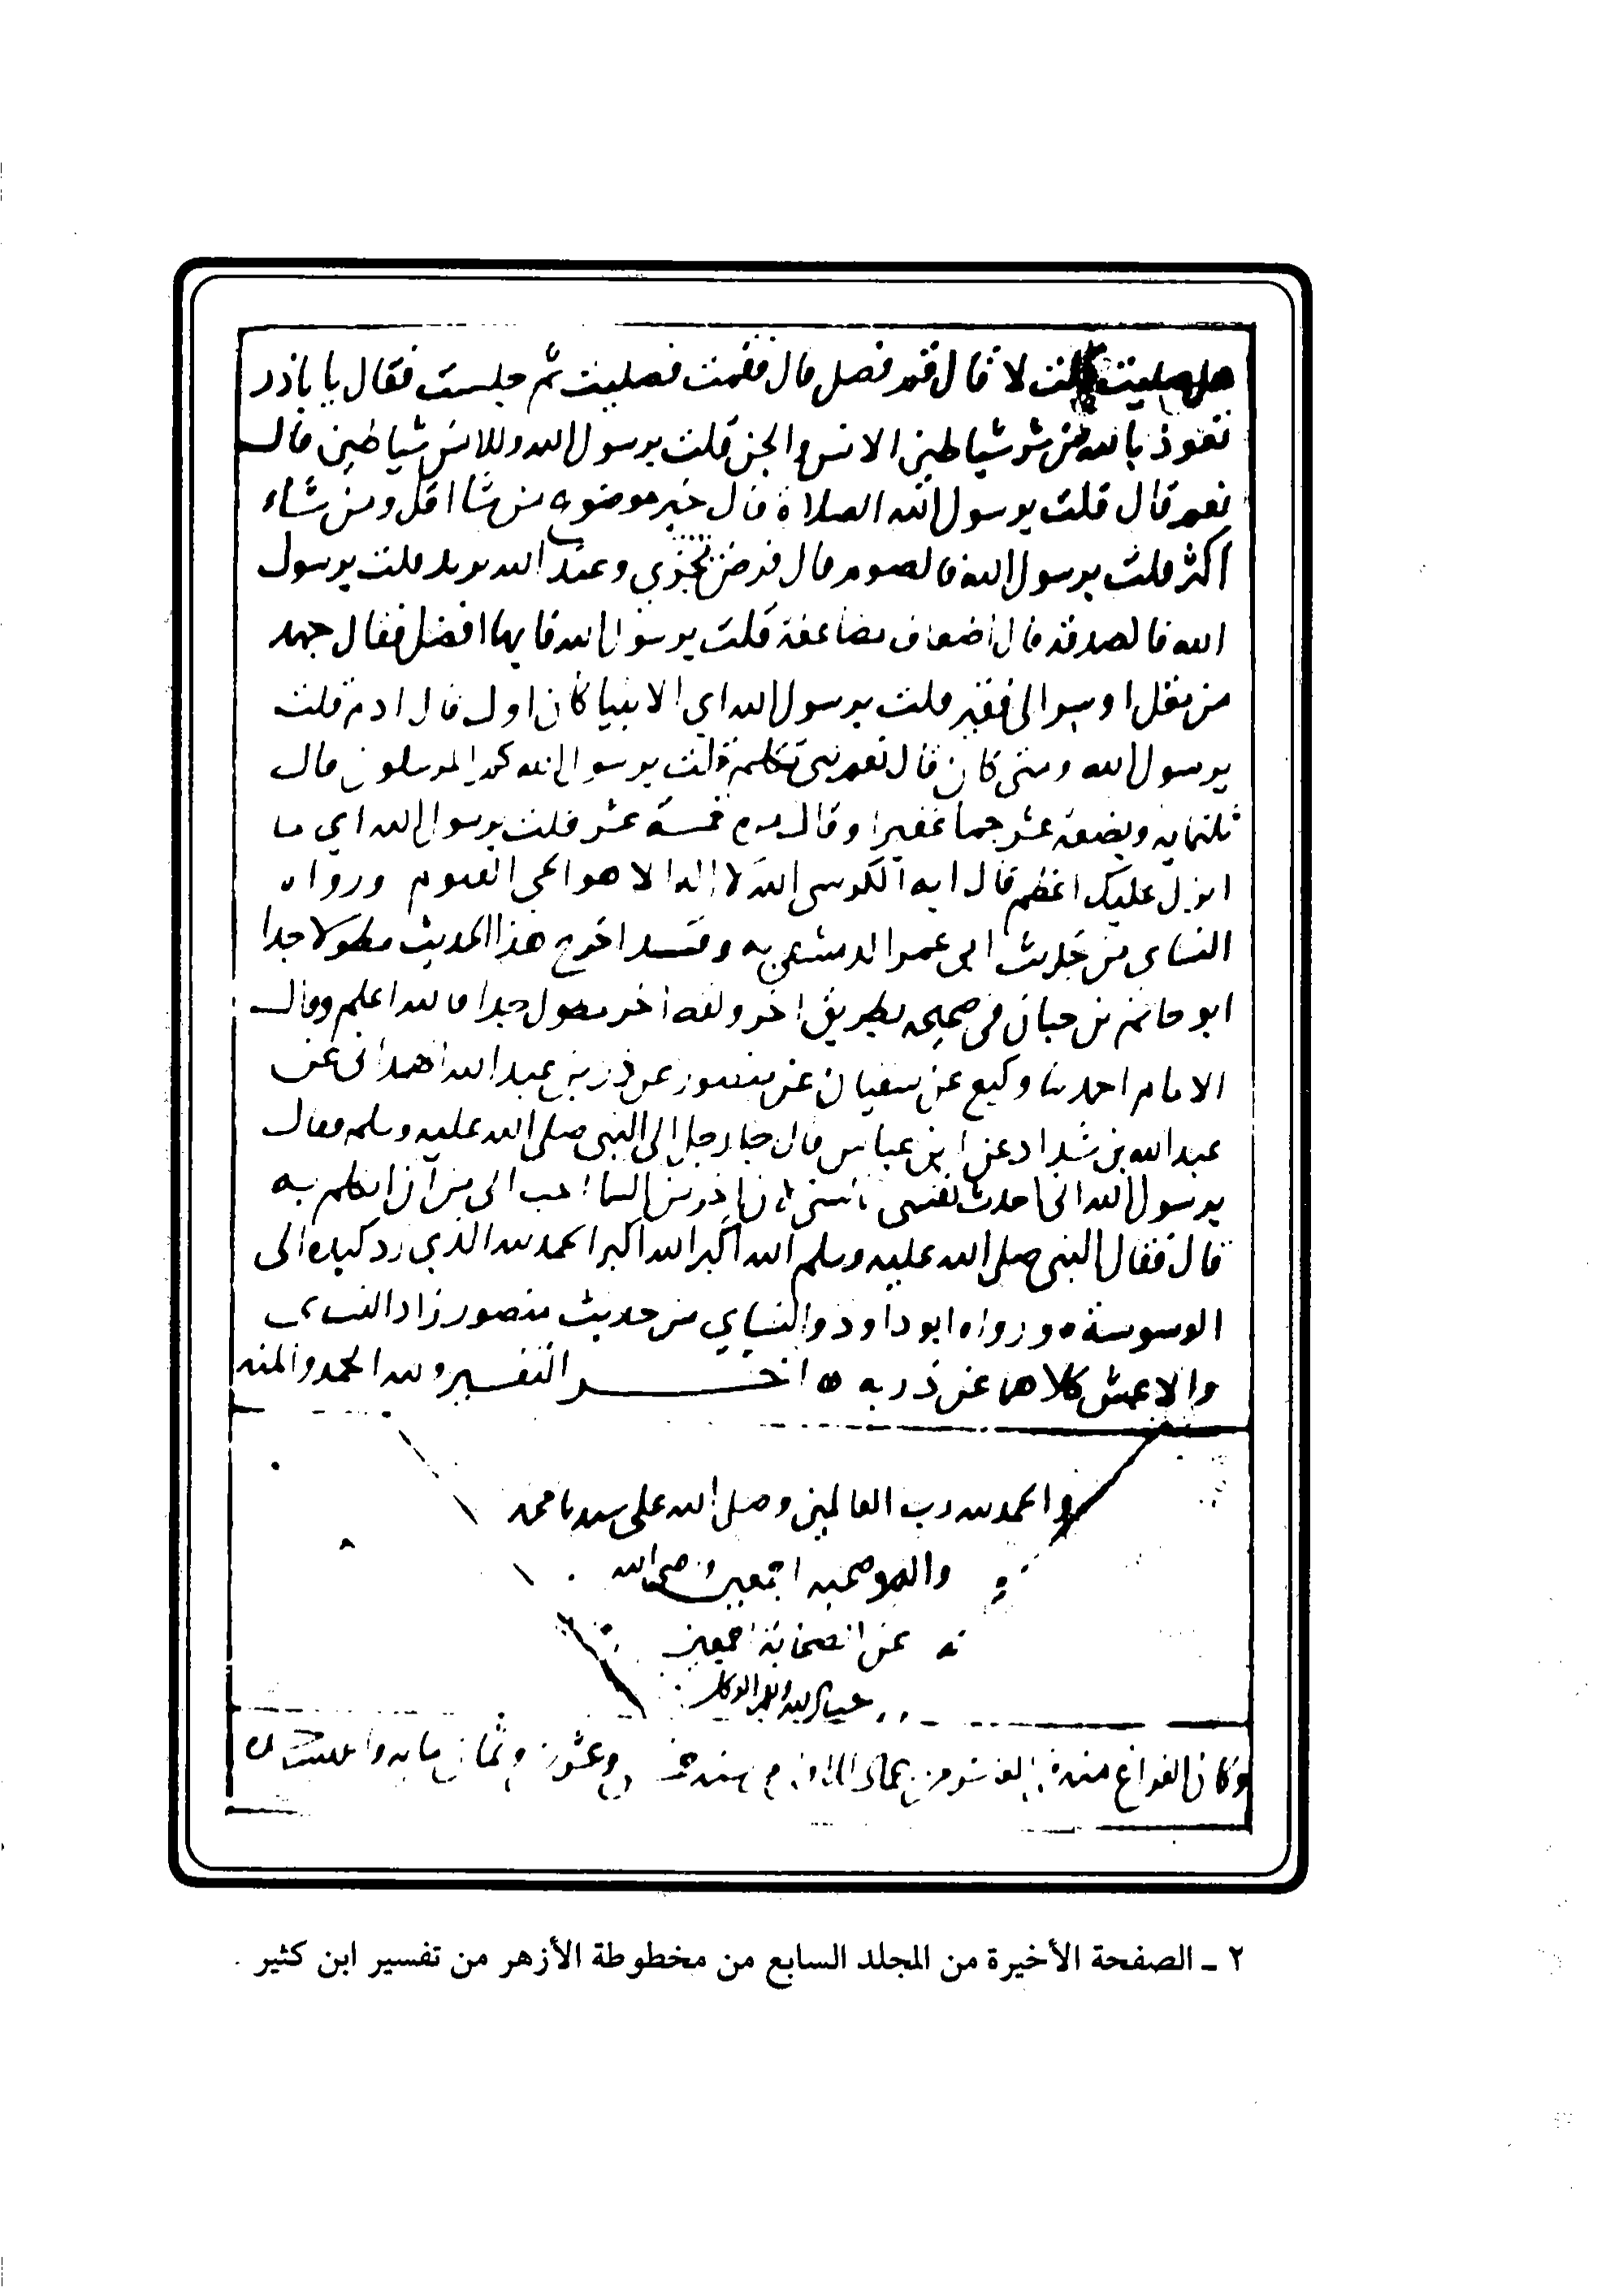 هل صليت قلت لا قال قم فصل قال فقمت فصليت ثم جلست فقال يا باذر
تعوذ بالله من شر شياطين الانس والجن قلت يرسول الله وللانس شياطين قال
نعم قال قلت يرسول الله الصلاة قال خير موضوع من شا اقل ومن شاء
أكثر قلت يرسول الله فالصوم قال فرض يجزي وعند الله مزيد قلت يرسول
الله فالصدقة قال أضعاف مضاعفة قلت يرسول الله فايها افضل فقال جهد
من مقل او سر الى فقير قلت يرسول الله اي الانبيا كان اول قال ادم قلت
يرسول الله ونبي كان قال نعم نبي مكلم قلت يرسول الله كم المرسلون قال
ثلثمايه وبضعة عشر جما غفيرا وقال مرة خمسة عشر قلت يرسول الله اي ما
انزل عليك اعظم قال ايه الكرسي الله لا اله الا هو الحي القيوم ورواه
النساي من حديث ابي عمر الدمشقي به وقد اخرج هذا الحديث مطولا جدا
ابو حاتم بن حبان في صحيحه بطريق اخر ولفظ اخر مطول جدا فالله اعلم وقال
الامام احمد ثنا وكيع عن سفيان عن منصور عن ذر بن عبد الله الهمداني عن
عبد الله بن شداد عن ابن عباس قال جا رجل إلى النبي صلى الله عليه وسلم فقال
يرسول الله اني احدث نفسي بالشي لان اخر من السما احب الي من ان اتكلم به
قال فقال النبي صلى الله عليه وسلم الله أكبر الله اكبر الحمد لله الذي رد كيده الى
الوسوسة ورواه ابو داود والنساي من حديث منصور زاد النساي
والاعمش كلاهما عن ذر به اخر التفسير ولله الحمد والمنه
والحمد لله رب العالمين وصلى الله على سيدنا محمد
واله وصحبه اجمعين ورضي الله
عن الصحابة اجمعين
حسبنا الله ونعم الوكيل
وكان الفراغ منه في العاشر من جمادى سنة خمس وعشرين وثمان مايه
٢ ـ الصفحة الأخيرة من المجلد السابع من مخطوطة الأزهر من تفسير ابن كثير .